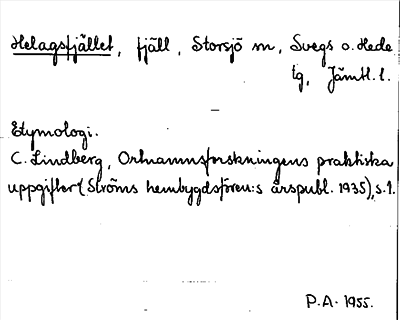 Helagsfjället, fjäll, Storsjö sn, Svegs o. Hede
tg, Jämtl. l.
Etymologi.
C. Lindberg, Ortnamnsforskningens praktiska
uppgifter (Ströms hembygdsfören:s årspubl. 1935), s. 9.
P.A. 1955.